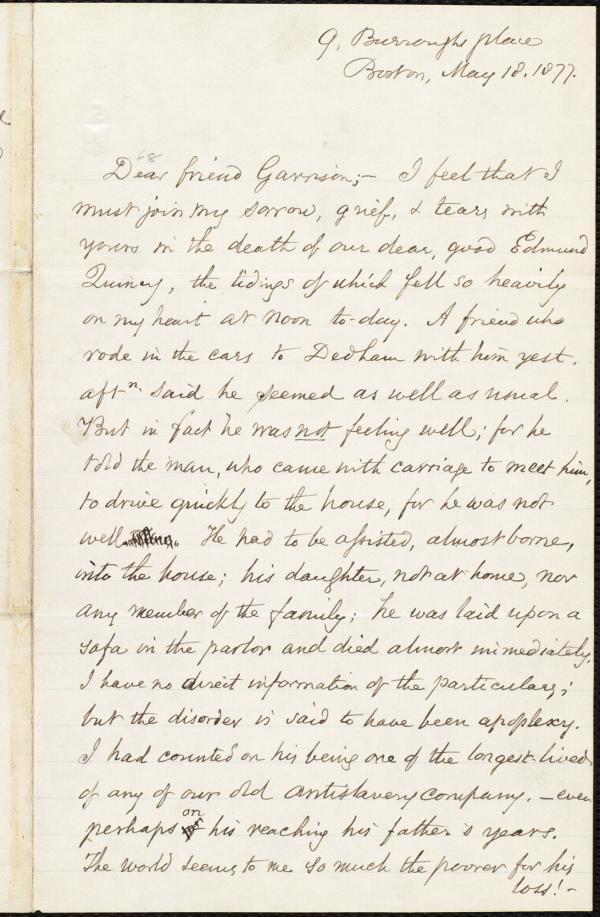 9, Burroughs place
Boston, May 18. 1877.
68
Dear friend Garrison;— I feel that I
must join my sorrow, grief, & tears with
yours in the death of our dear, good Edmund
Quincy, the tidings of which fell so heavily
on my heart at noon to-day. A friend who
rode in the cars to Dedham with him yest.
aftn. said he seemed as well as usual.
But in fact he was not feeling well; for he
told the man, who came with carriage to meet him,
to drive quickly to the house, for he was not
well. He had to be assisted, almost borne,
into the house; his daughter, not at home, nor
any member of the family; he was laid upon a
sofa in the parlor and died almost immediately.
I have no direct information of the particulars;
but the disorder is said to have been apoplexy.
I had counted on his being one of the longest-lived
of any of our old antislavery company, — even
perhaps on his reaching his father's years.
The world seems to me so much the poorer for his
loss! —